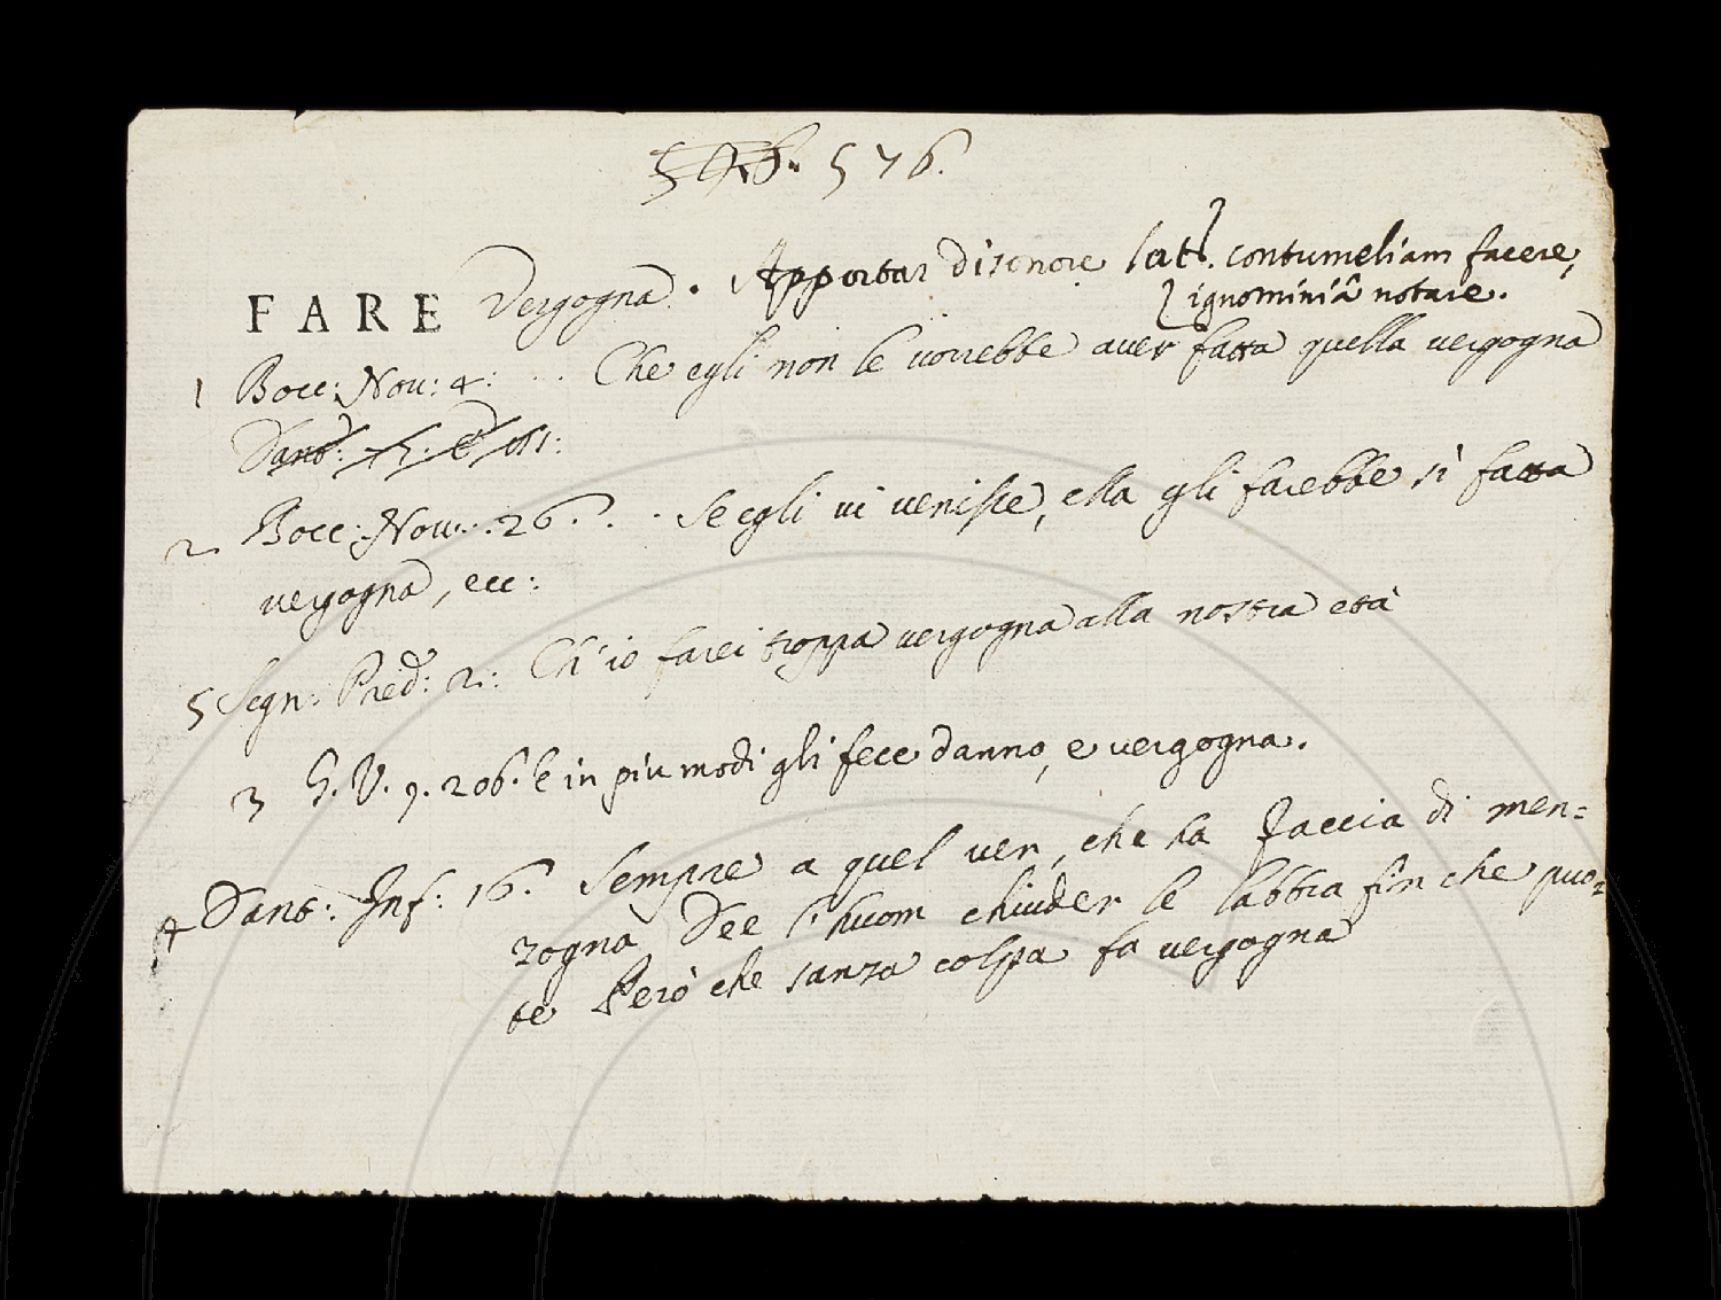 576.
FARE Vergogna. Apportar disonore lat. contumeliam facere,
ignominiâ notare.
1 Bocc: Nov: 4: . . Che egli non le vorrebbe aver fatta quella vergogna
Dant:
2 Bocc: Nov: . 26. . . Se egli vi venisse, ella gli farebbe sì fatta
vergogna, ecc:
5 Segn: Pred: 2: Ch'io farei troppa vergogna alla nostra età
3 G. V. 9. 206. E in piu modi gli fece danno, e vergogna.
4 Dant: Inf: 16. Sempre a quel ver, che ha faccia di men=
zogna Dee l'huom chiuder le labbra fin che puo=
te Però che sanza colpa fa vergogna